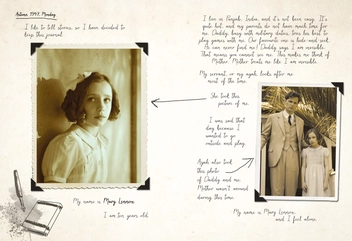 Autumn 1947, Monday
I like to tell stories, so I have decided to
keep this journal.
My name is Mary Lennox.
I am ten years old.
I live in Punjab, India, and it's not been easy. It's
quite hot, and my parents do not have much time for
me. Daddy, busy with military duties, tries his best to
play games with me. Our favourite one is hide and seek.
He can never find me! Daddy says I am invisible.
That means you cannot see me. This makes me think of
Mother. Mother treats me like I am invisible.
My servant, or my ayah, looks after me
most of the time.
She took this
picture of me.
I was sad that
day because I
wanted to go
outside and play.
Ayah also took
this photo
of Daddy and me.
Mother wasn't around
during this time.
My name is Mary Lennox,
and I feel alone.